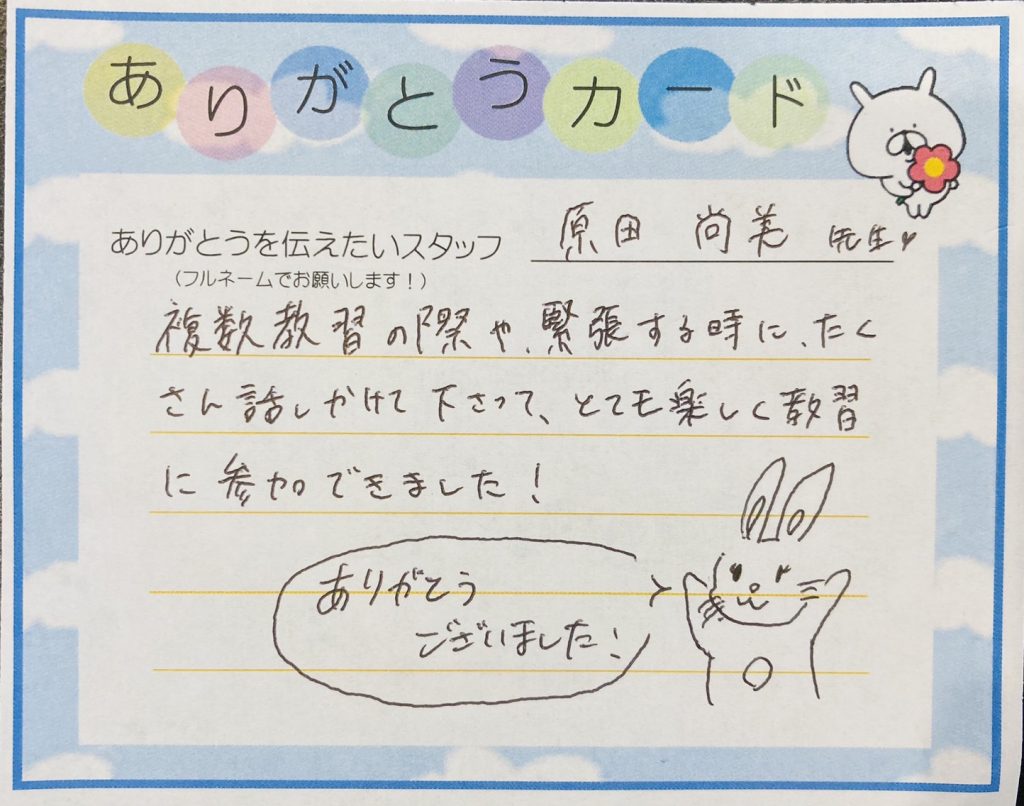 ありがとうカード
ありがとうを伝えたいスタッフ 原田 尚美 先生♥
(フルネームでお願いします！)
複数教習の際や、緊張する時に、たく
さん話しかけて下さって、とても楽しく教習
に参加できました！
ありがとう
ございました！